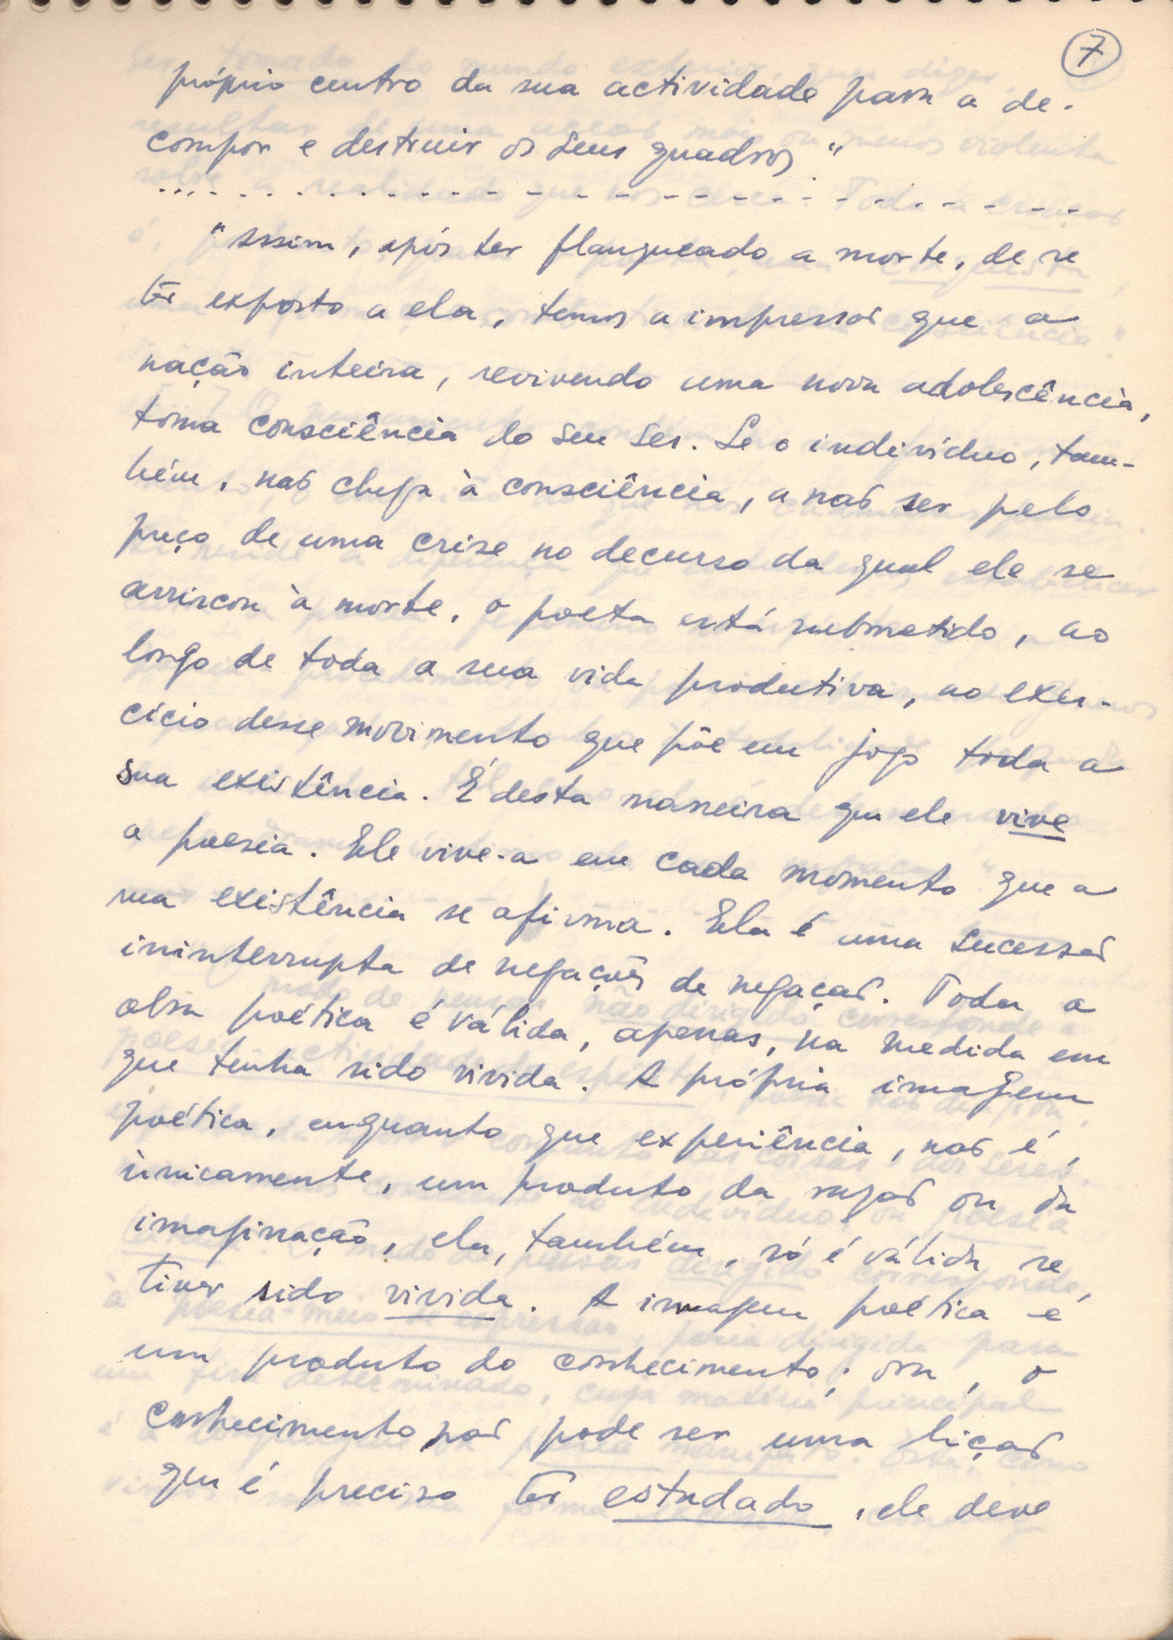 7
próprio centro da sua actividade para a de-
compor e destruir os seus quadros"
"Assim, após ter flanqueado a morte, de se
ter exposto a ela, temos a impressão que a
nação inteira, revivendo uma nova adolescência,
toma consciência do seu ser. Se o indivíduo, tam-
bém, não chega à consciência, a não ser pelo
preço de uma crise no decurso da qual ele se
arriscou à morte, o poeta está submetido, ao
longo de toda a sua vida produtiva, ao exer-
cício desse movimento que põe em jogo toda a
sua existência. É desta maneira que ele vive
a poesia. Ele vive-a em cada momento que a
sua existência se afirma. Ela é uma sucessão
ininterrupta de negações de negação. Toda a
obra poética é válida, apenas, na medida em
que tenha sido vivida. A própria imagem
poética, enquanto que experiência, não é,
ùnicamente, um produto da razão ou da
imaginação, ela, também, só é válida se
tiver sido vivida. A imagem poética é
um produto do conhecimento; ora, o
conhecimento não pode ser uma lição
que é preciso ter estudado, ele deve